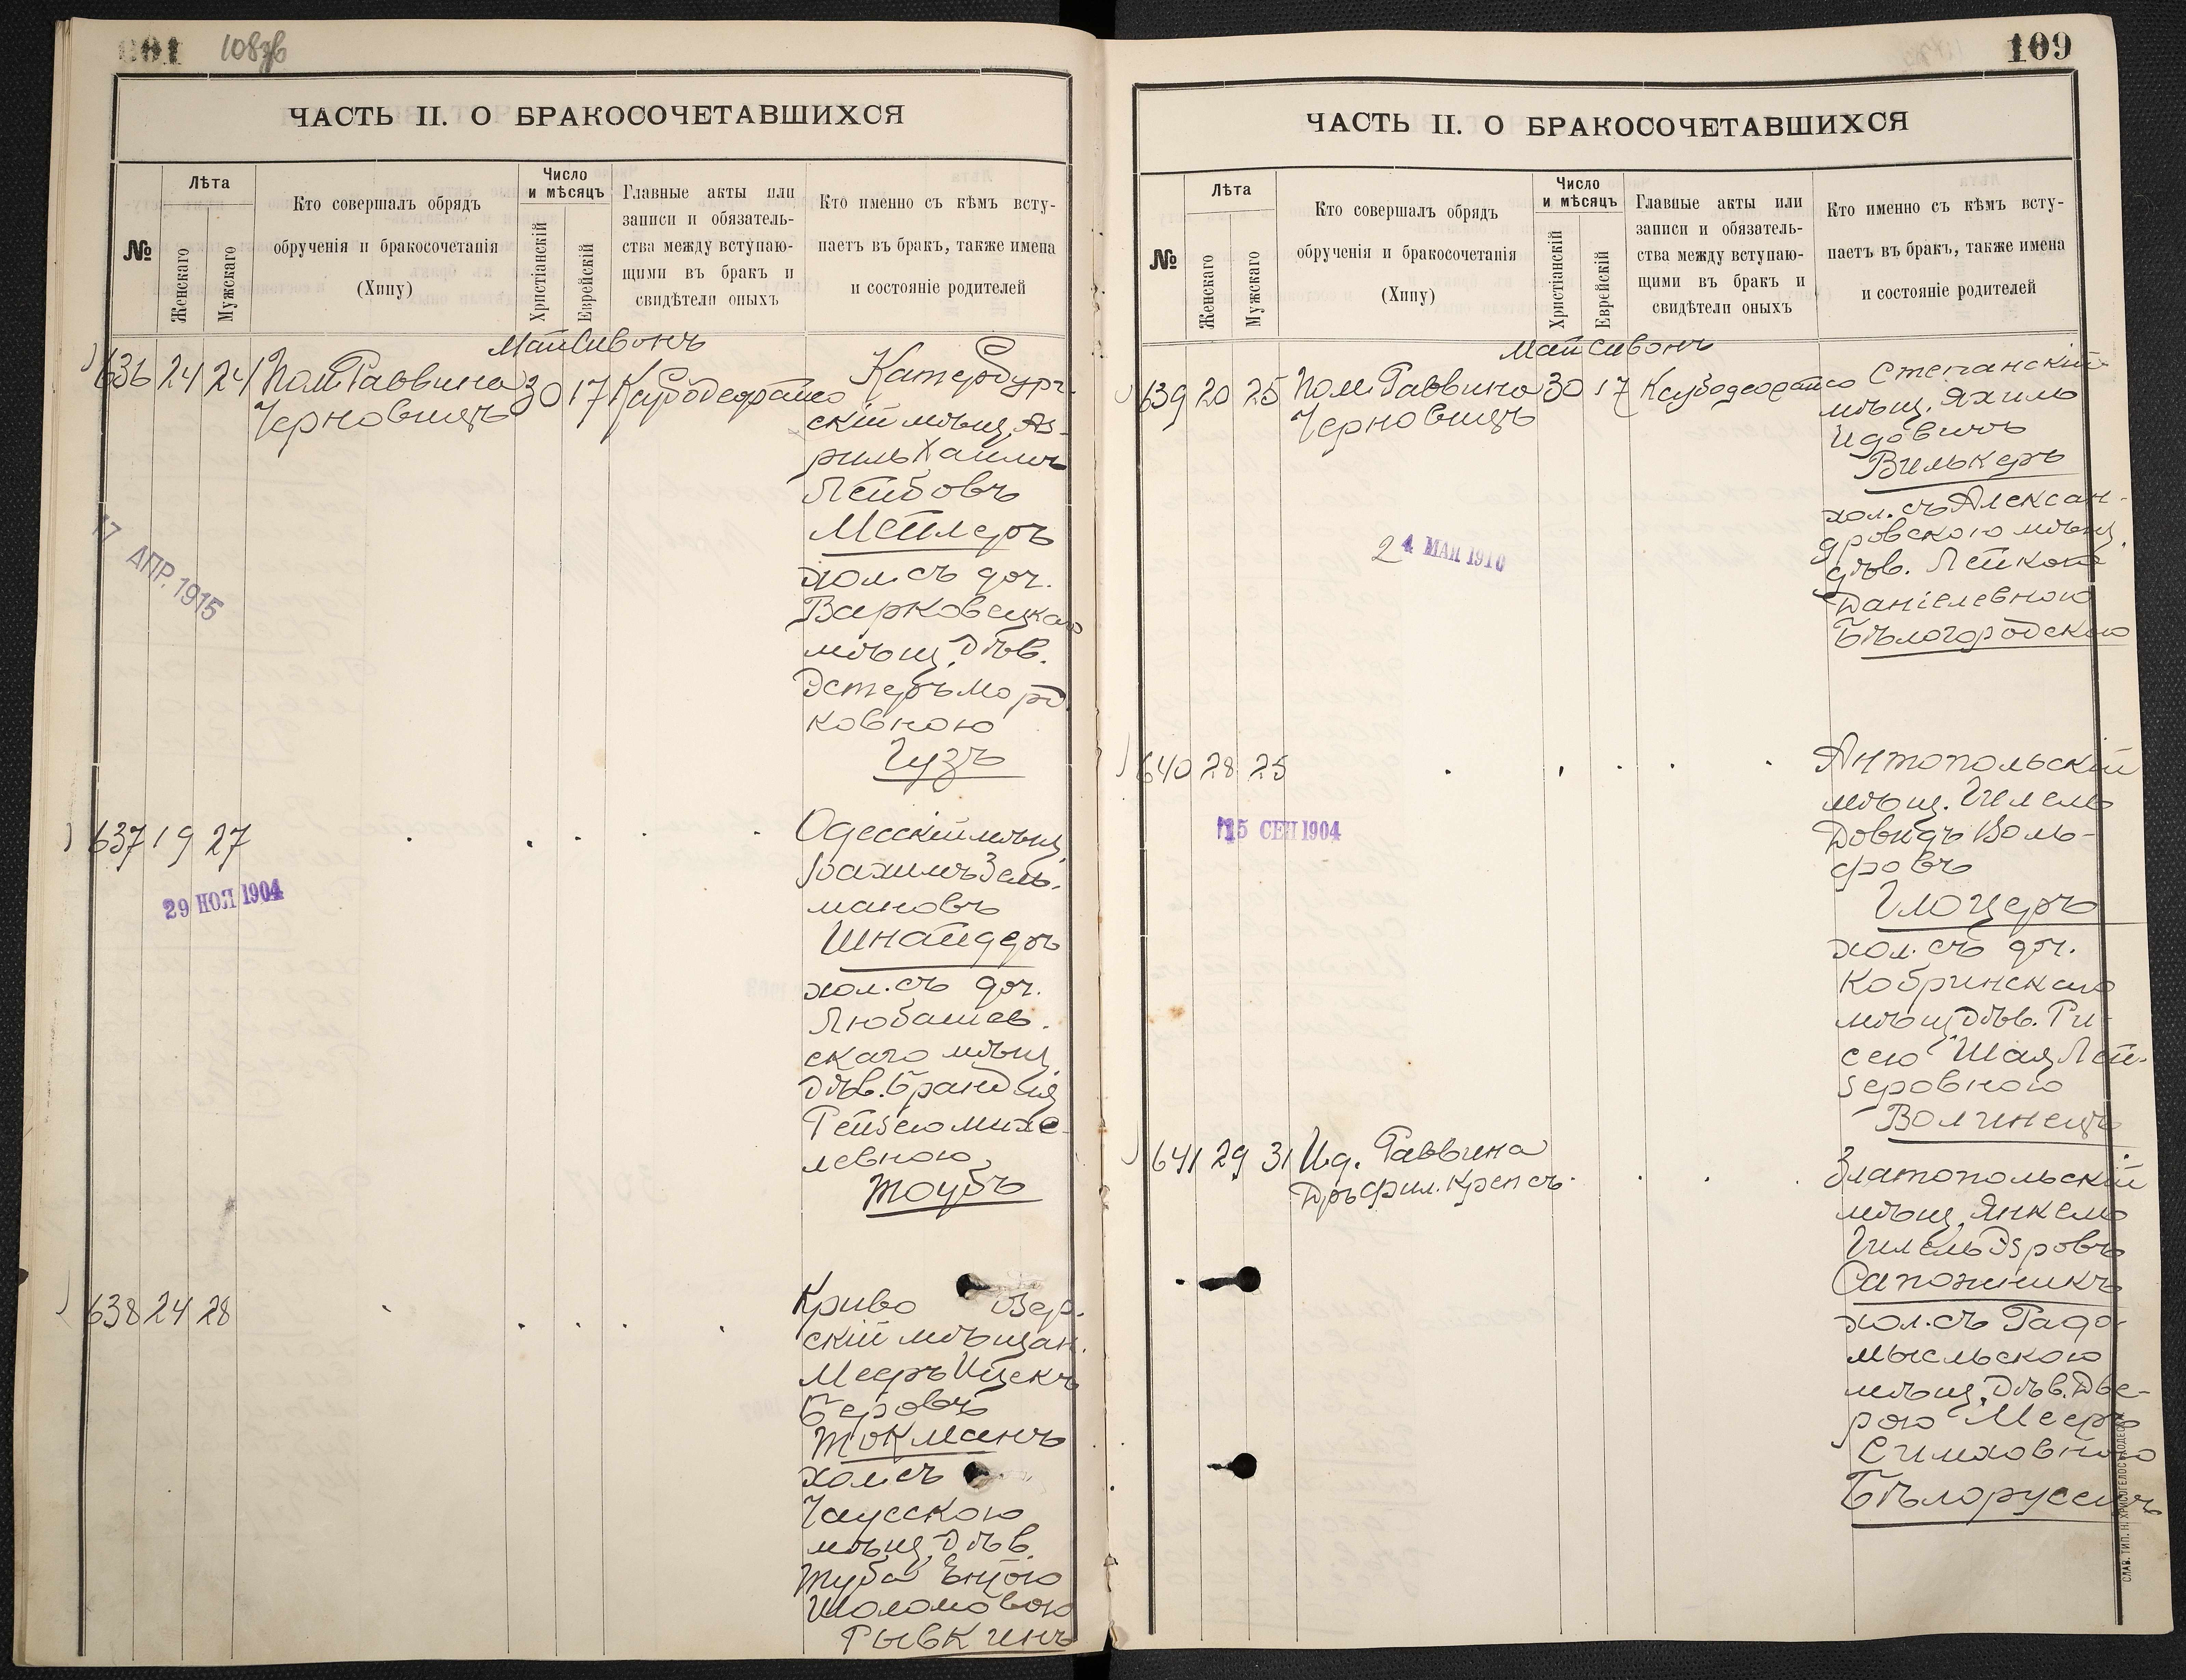 108об
ЧАСТЬ II. О БРАКОСОЧЕТАВШИХСЯ
№
Лѣта
Женскаго
Мужскаго
Кто совершалъ обрядъ
обрученія и бракосочетанія
(Хипу)
Число
и мѣсяцъ
Христіанскій
Еврейскій
Главные акты или
записи и обязатель-
ства между вступаю-
щими въ бракъ и
свидѣтели оныхъ
Кто именно съ кѣмъ всту-
паетъ въ бракъ, также имена
и состояніе родителей
Май Сивонъ
636 24 24 Пом. Раввина 30 17
Черновицъ
Катербург-
скій мѣщ. Аз-
риль Хаимъ
Лейбовъ
Мейлеръ
хол. съ доч.
Варковецкаго
мѣщ. Дѣв.
Эстеръ Морд
ковною
Гузъ
17 АПР. 1915
637 19 27
Одесскій мѣщ.
Рахилъ Зель-
мановъ
Шнайдеръ
хол. съ доч.
Любашев-
скаго мѣщ.
Дѣв.
Рейзею Михе-
левною
Таубъ
29 НОЯ 1904
638 24 28
Криво Озер-
скій мѣщан.
Мееръ Ицекъ
Беровъ
Токманъ
хол. съ
Чаусскою
мѣщ. Дѣв.
Туба Ентою
Шоломовою
Рывкинъ
109
ЧАСТЬ II. О БРАКОСОЧЕТАВШИХСЯ
№
Лѣта
Женскаго
Мужскаго
Кто совершалъ обрядъ
обрученія и бракосочетанія
(Хипу)
Число
и мѣсяцъ
Христіанскій
Еврейскій
Главные акты или
записи и обязатель-
ства между вступаю-
щими въ бракъ и
свидѣтели оныхъ
Кто именно съ кѣмъ всту-
паетъ въ бракъ, также имена
и состояніе родителей
Май Сивонъ
639 20 25 Пом. Раввина 30 17
Черновицъ
Степанскій
мѣщ. Яхиль
Идовичъ
Вилькеръ
хол. съ Алексан-
дровскою мѣщ.
дѣв. Лейкою
Даніелевною
Бѣлогородскою
24 МАЯ 1910
640 28 25
Антопольскій
мѣщ. Гилель
Довидъ Воль-
фовъ
Глоцеръ
хол. съ доч.
Кобринскаго
мѣщ. Дѣв. Ри-
сею Шая Лей-
зеровною
Волинецъ
15 СЕН 1904
641 29 31 И.д. Раввина
Дръ Фил. Крепсъ
Златопольскій
мѣщ. Янкель
Гилель Эзровъ
Сапожникъ
хол. съ Радо-
мысльскою
мѣщ. Дѣв. Две-
рою Мееръ
Симховною
Бѣлорусецъ
СЛАВ. ТИП. Н. ХРИСОГЕЛОСЪ ОДЕССА